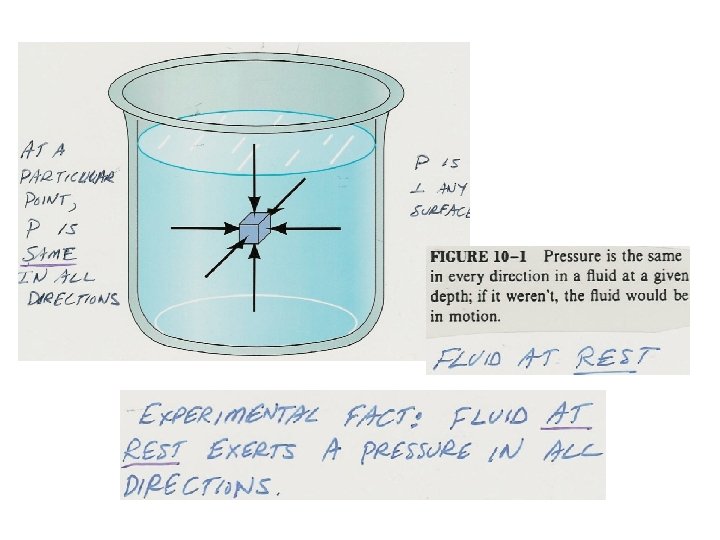 AT A
PARTICULAR
POINT,
P IS
SAME
IN ALL
DIRECTIONS
P IS
⊥ ANY
SURFACE
FIGURE 10–1 Pressure is the same
in every direction in a fluid at a given
depth; if it weren't, the fluid would be
in motion.
FLUID AT REST
EXPERIMENTAL FACT: FLUID AT
REST EXERTS A PRESSURE IN ALL
DIRECTIONS.